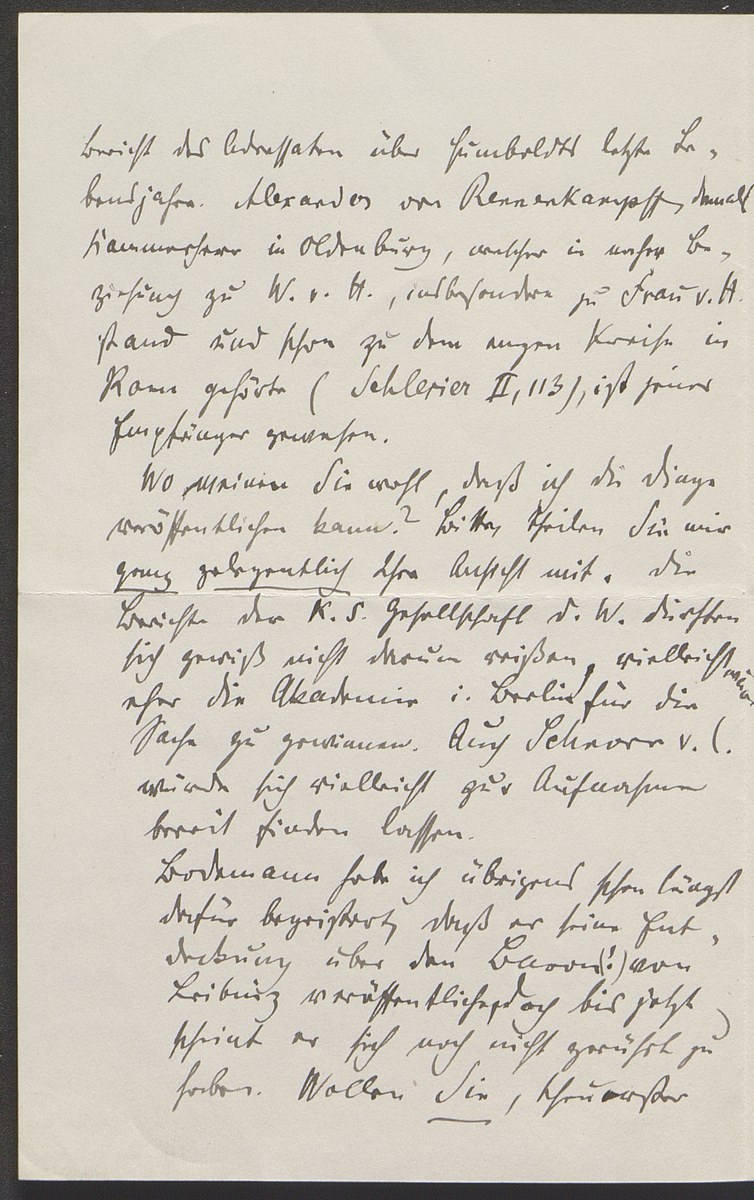 Bericht des Adressaten über Humboldts letzte Le-
bensjahre. Alexander von Rennenkampff, damals
Kammerherr in Oldenburg, welcher in naher Be-
ziehung zu W. v. H., insbesondere zu Frau v. H.
stand und schon zu dem engen Kreise in
Rom gehörte (Schlesier II, 113), ist jener
Empfänger gewesen.
Wo meinen Sie wohl, daß ich die Dinge
veröffentlichen kann? Bitte, theilen Sie mir
ganz gelegentlich Ihre Ansicht mit. Die
Berichte der K. S. Gesellschaft d. W. dürften
sich gewiß nicht darum reißen, vielleicht wäre
eher die Akademie i. Berlin für die
Sache zu gewinnen. Auch Schnorr v. C.
würde sich vielleicht zur Aufnahme
bereit finden lassen.
Bodemann habe ich übrigens schon längst
dafür begeistert, daß er seine Ent-
deckung über den Baron (!) von
Leibniz veröffentliche, doch bis jetzt
scheint er sich noch nicht gerührt zu
haben. Wollen Sie, theuerster